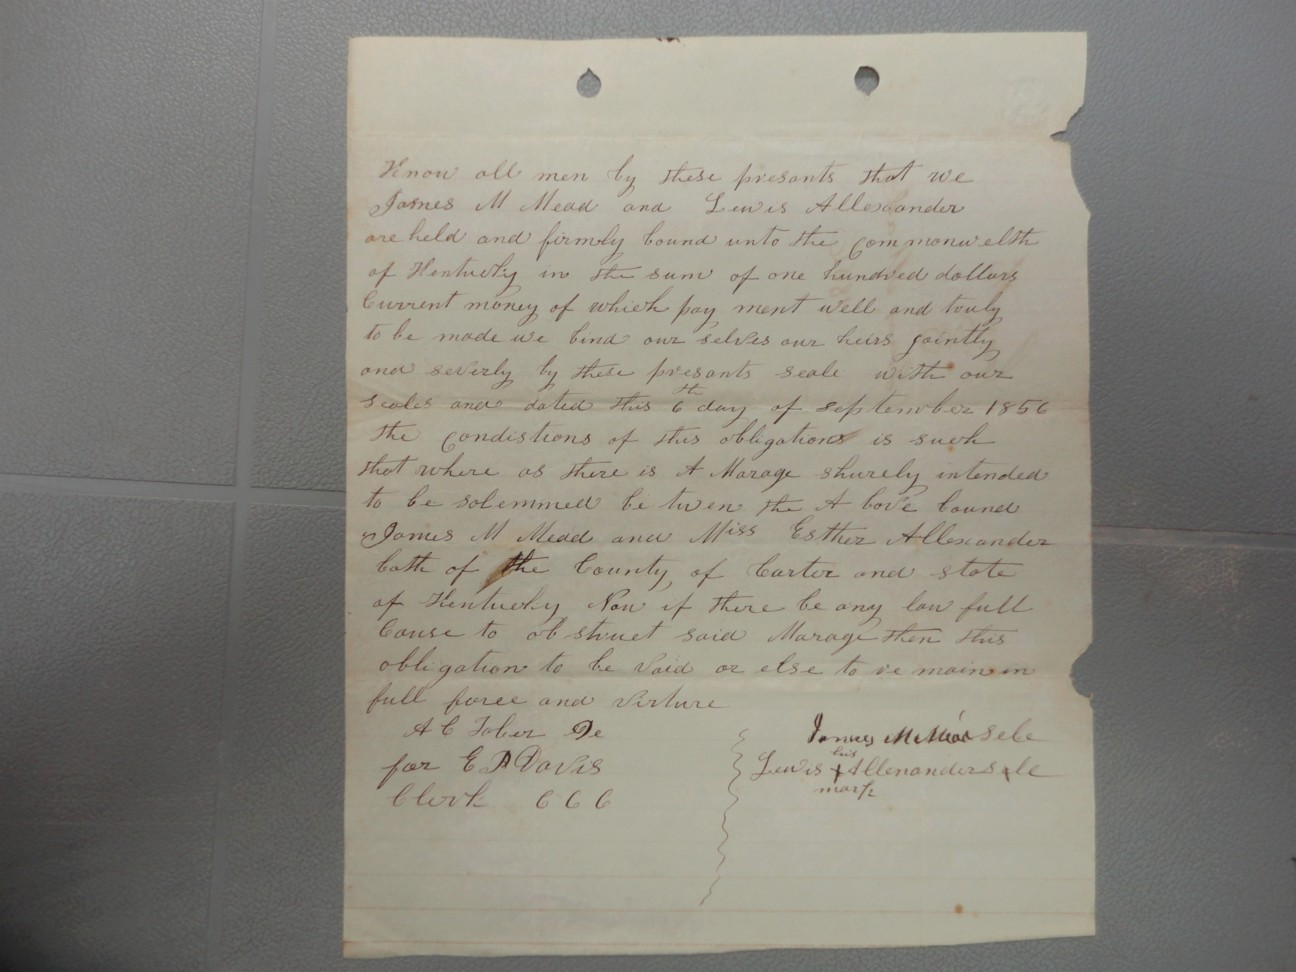 Know all men by these presants that we
James M Mead and Lewis Allexander
are held and firmly bound unto the commonwelth
of Kentucky in the sum of one hundred dollars
Current money of which pay ment well and truly
to be made we bind our selves our heirs jointly
and severly by these presants seale with our
seales and dated this 6th day of september 1856
the condistions of this obligations is such
that where as there is A Marage shurely intended
to be solemmed be twen the A bove bound
James M Mead and Miss Esther Allexander
both of the County of Carter and state
of Kentucky Now if there be any law full
Cause to ob struct said Marage then this
obligation to be void or else to re main in
full force and virture
A C Tober De
for E P Davis
Clerk C C C
James M Mead sele
his
Lewis X Allenander sele
mark